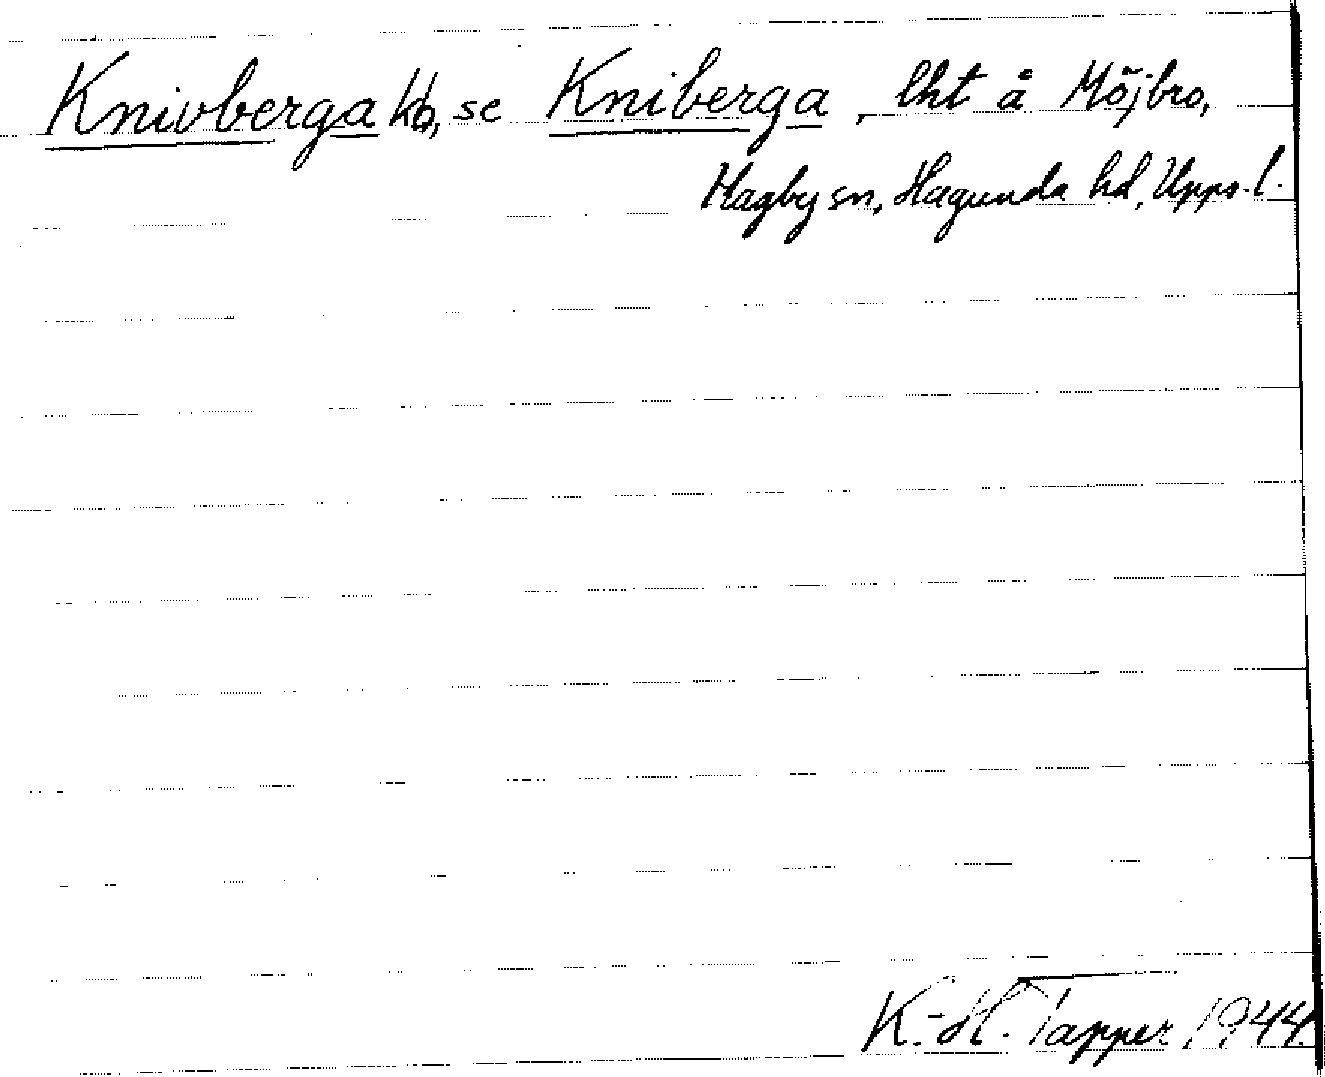 Knivberga hb, se Kniberga, lht å Möjbro,
Hagby sn, Hagunda hd, Upps. l.
K.-H. Tapper 1944.